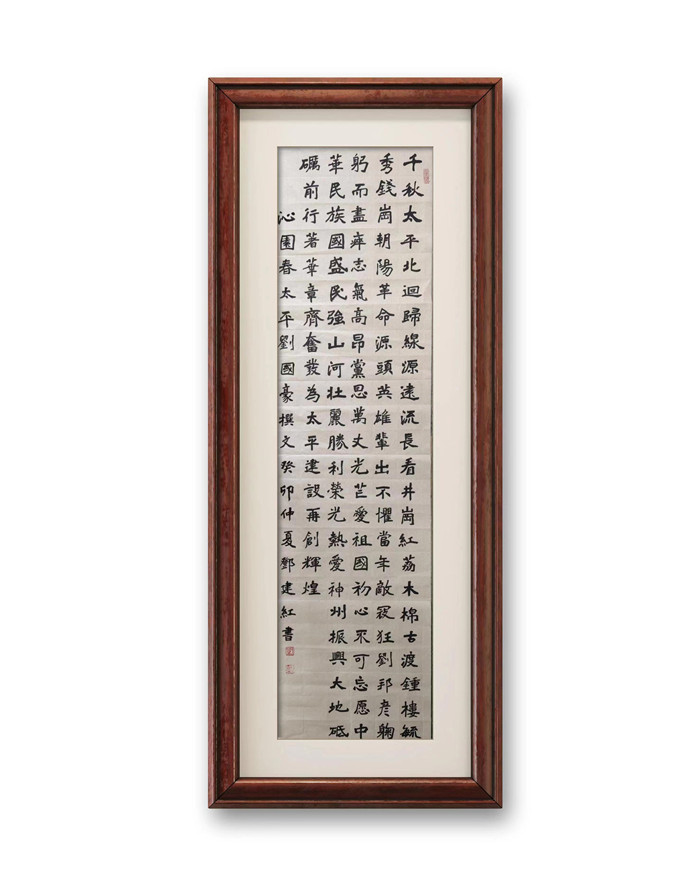 千秋太平北迴歸線源遠流長看井崗紅荔木棉古渡鍾樓毓
秀錢崗朝陽革命源頭英雄輩出不懼當年敵寇狂劉邦彥鞠
躬而盡瘁志氣高昂黨恩萬丈光芒愛祖國初心不可忘愿中
華民族國盛民強山河壯麗勝利榮光熱愛神州振興大地砥
礪前行著華章齊奮發為太平建設再創輝煌
沁園春太平劉國豪撰文癸卯仲夏鄧建紅書